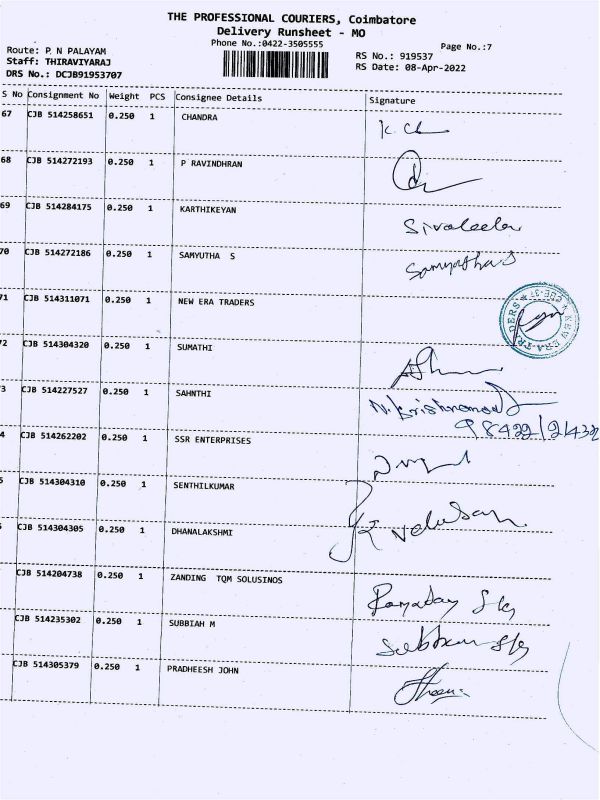 THE PROFESSIONAL COURIERS, Coimbatore
Delivery Runsheet - MO
Phone No.:0422-3505555
Page No.:7
Route: P. N PALAYAM
Staff: THIRAVIYARAJ
DRS No.: DCJB91953707
RS No.: 919537
RS Date: 08-Apr-2022
S No Consignment No Weight PCS Consignee Details Signature
67 CJB 514258651 0.250 1 CHANDRA K Ch
68 CJB 514272193 0.250 1 P RAVINDHRAN
69 CJB 514284175 0.250 1 KARTHIKEYAN Sivaleela
70 CJB 514272186 0.250 1 SAMYUTHA S Samyutha S
71 CJB 514311071 0.250 1 NEW ERA TRADERS NEW ERA TRADERS CBE-37
2 CJB 514304320 0.250 1 SUMATHI
3 CJB 514227527 0.250 1 SAHNTHI N. Krishnamoo
98422/21432
4 CJB 514262202 0.250 1 SSR ENTERPRISES
5 CJB 514304310 0.250 1 SENTHILKUMAR
CJB 514304305 0.250 1 DHANALAKSHMI
CJB 514204738 0.250 1 ZANDING TQM SOLUSINOS
CJB 514235302 0.250 1 SUBBIAH M
CJB 514305379 0.250 1 PRADHEESH JOHN